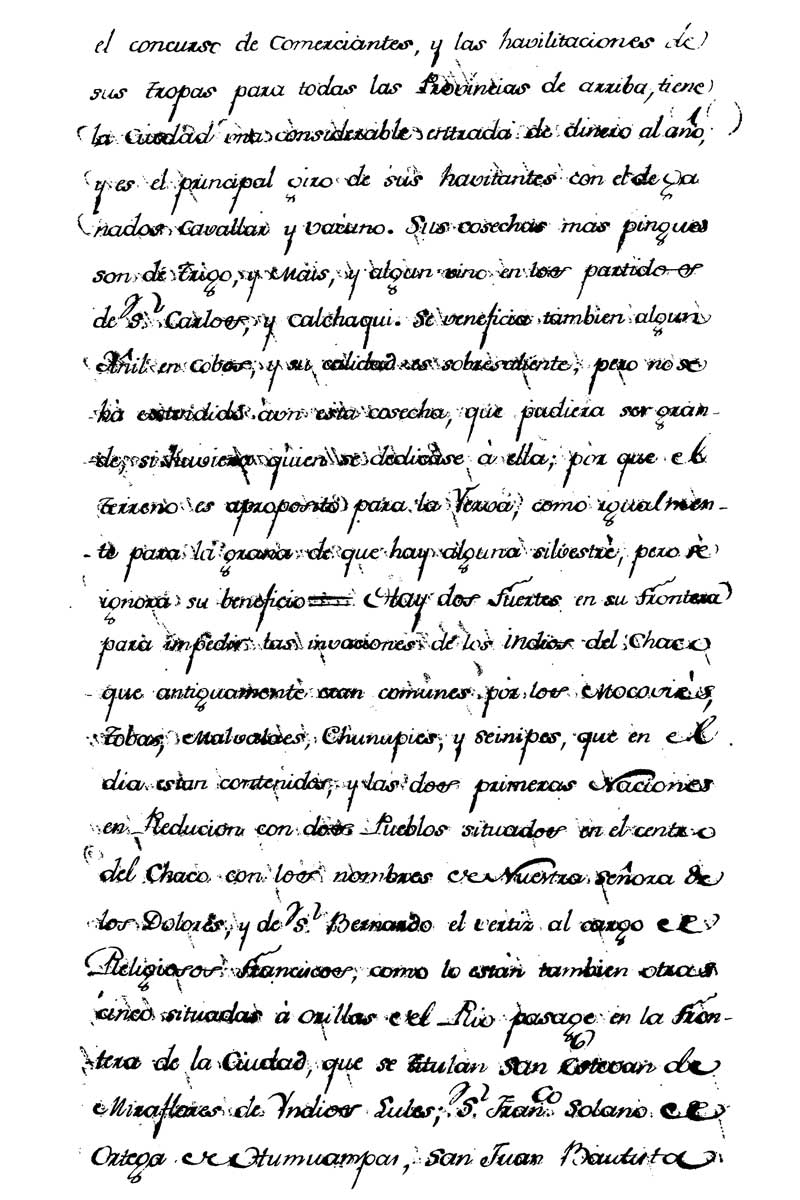 el concurso de Comerciantes, y las havilitaciones de
sus tropas para todas las Provincias de arriba, tiene
la Ciudad una considerable entrada de dinero al año,
y es el principal giro de sus havitantes con el de ga
nados Cavallar y vacuno. Sus cosechas mas pingues
son de trigo, y Mais, y algun vino en los partidos
de Sn. Carlos, y Calchaqui. Se veneficia tambien algun
Añil en Cobos, y su calidad es sobresaliente, pero no se
ha extendido aun esta cosecha, que pudiera ser gran-
de, si huviera quien se dedicase à ella; por que el
terreno es aproposito para la Yerva, como igualmen-
te para la grana de que hay alguna silvestre, pero se
ignora su beneficio = Hay dos fuertes en su frontera
para impedir las invaciones de los Indios del Chaco
que antiguamente eran comunes por los Mocovies,
tobas, Malvalaes, Chunupies, y Seinipes, que en el
dia estan contenidos, y las dos primeras Naciones
en Reducion con dos Pueblos situados en el centro
del Chaco con los nombres de Nuestra Señora de
los Dolores, y de Sn. Bernardo el vertiz al cargo de
Religiosos Franciscos, como lo están tambien otras
cinco situadas à orillas del Rio pasage en la fron-
tera de la Ciudad, que se titulan San Estevan de
Miraflores de Yndios Lules, Sn. Franco. Solano de
Ortega de Humuampas, San Juan Bautista